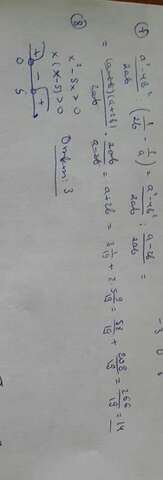 ⑦ (a²-4b²)/2ab : (1/2b - 1/a) = (a²-4b²)/2ab : (a-2b)/2ab =
= (a-2b)(a+2b)/2ab · 2ab/(a-2b) = a+2b = 3 1/19 + 2 · 5 9/19 = 58/19 + 208/19 = 266/19 = 14
⑧ x² - 5x > 0
x (x-5) > 0
+ - +
0 5
Ответ: 3